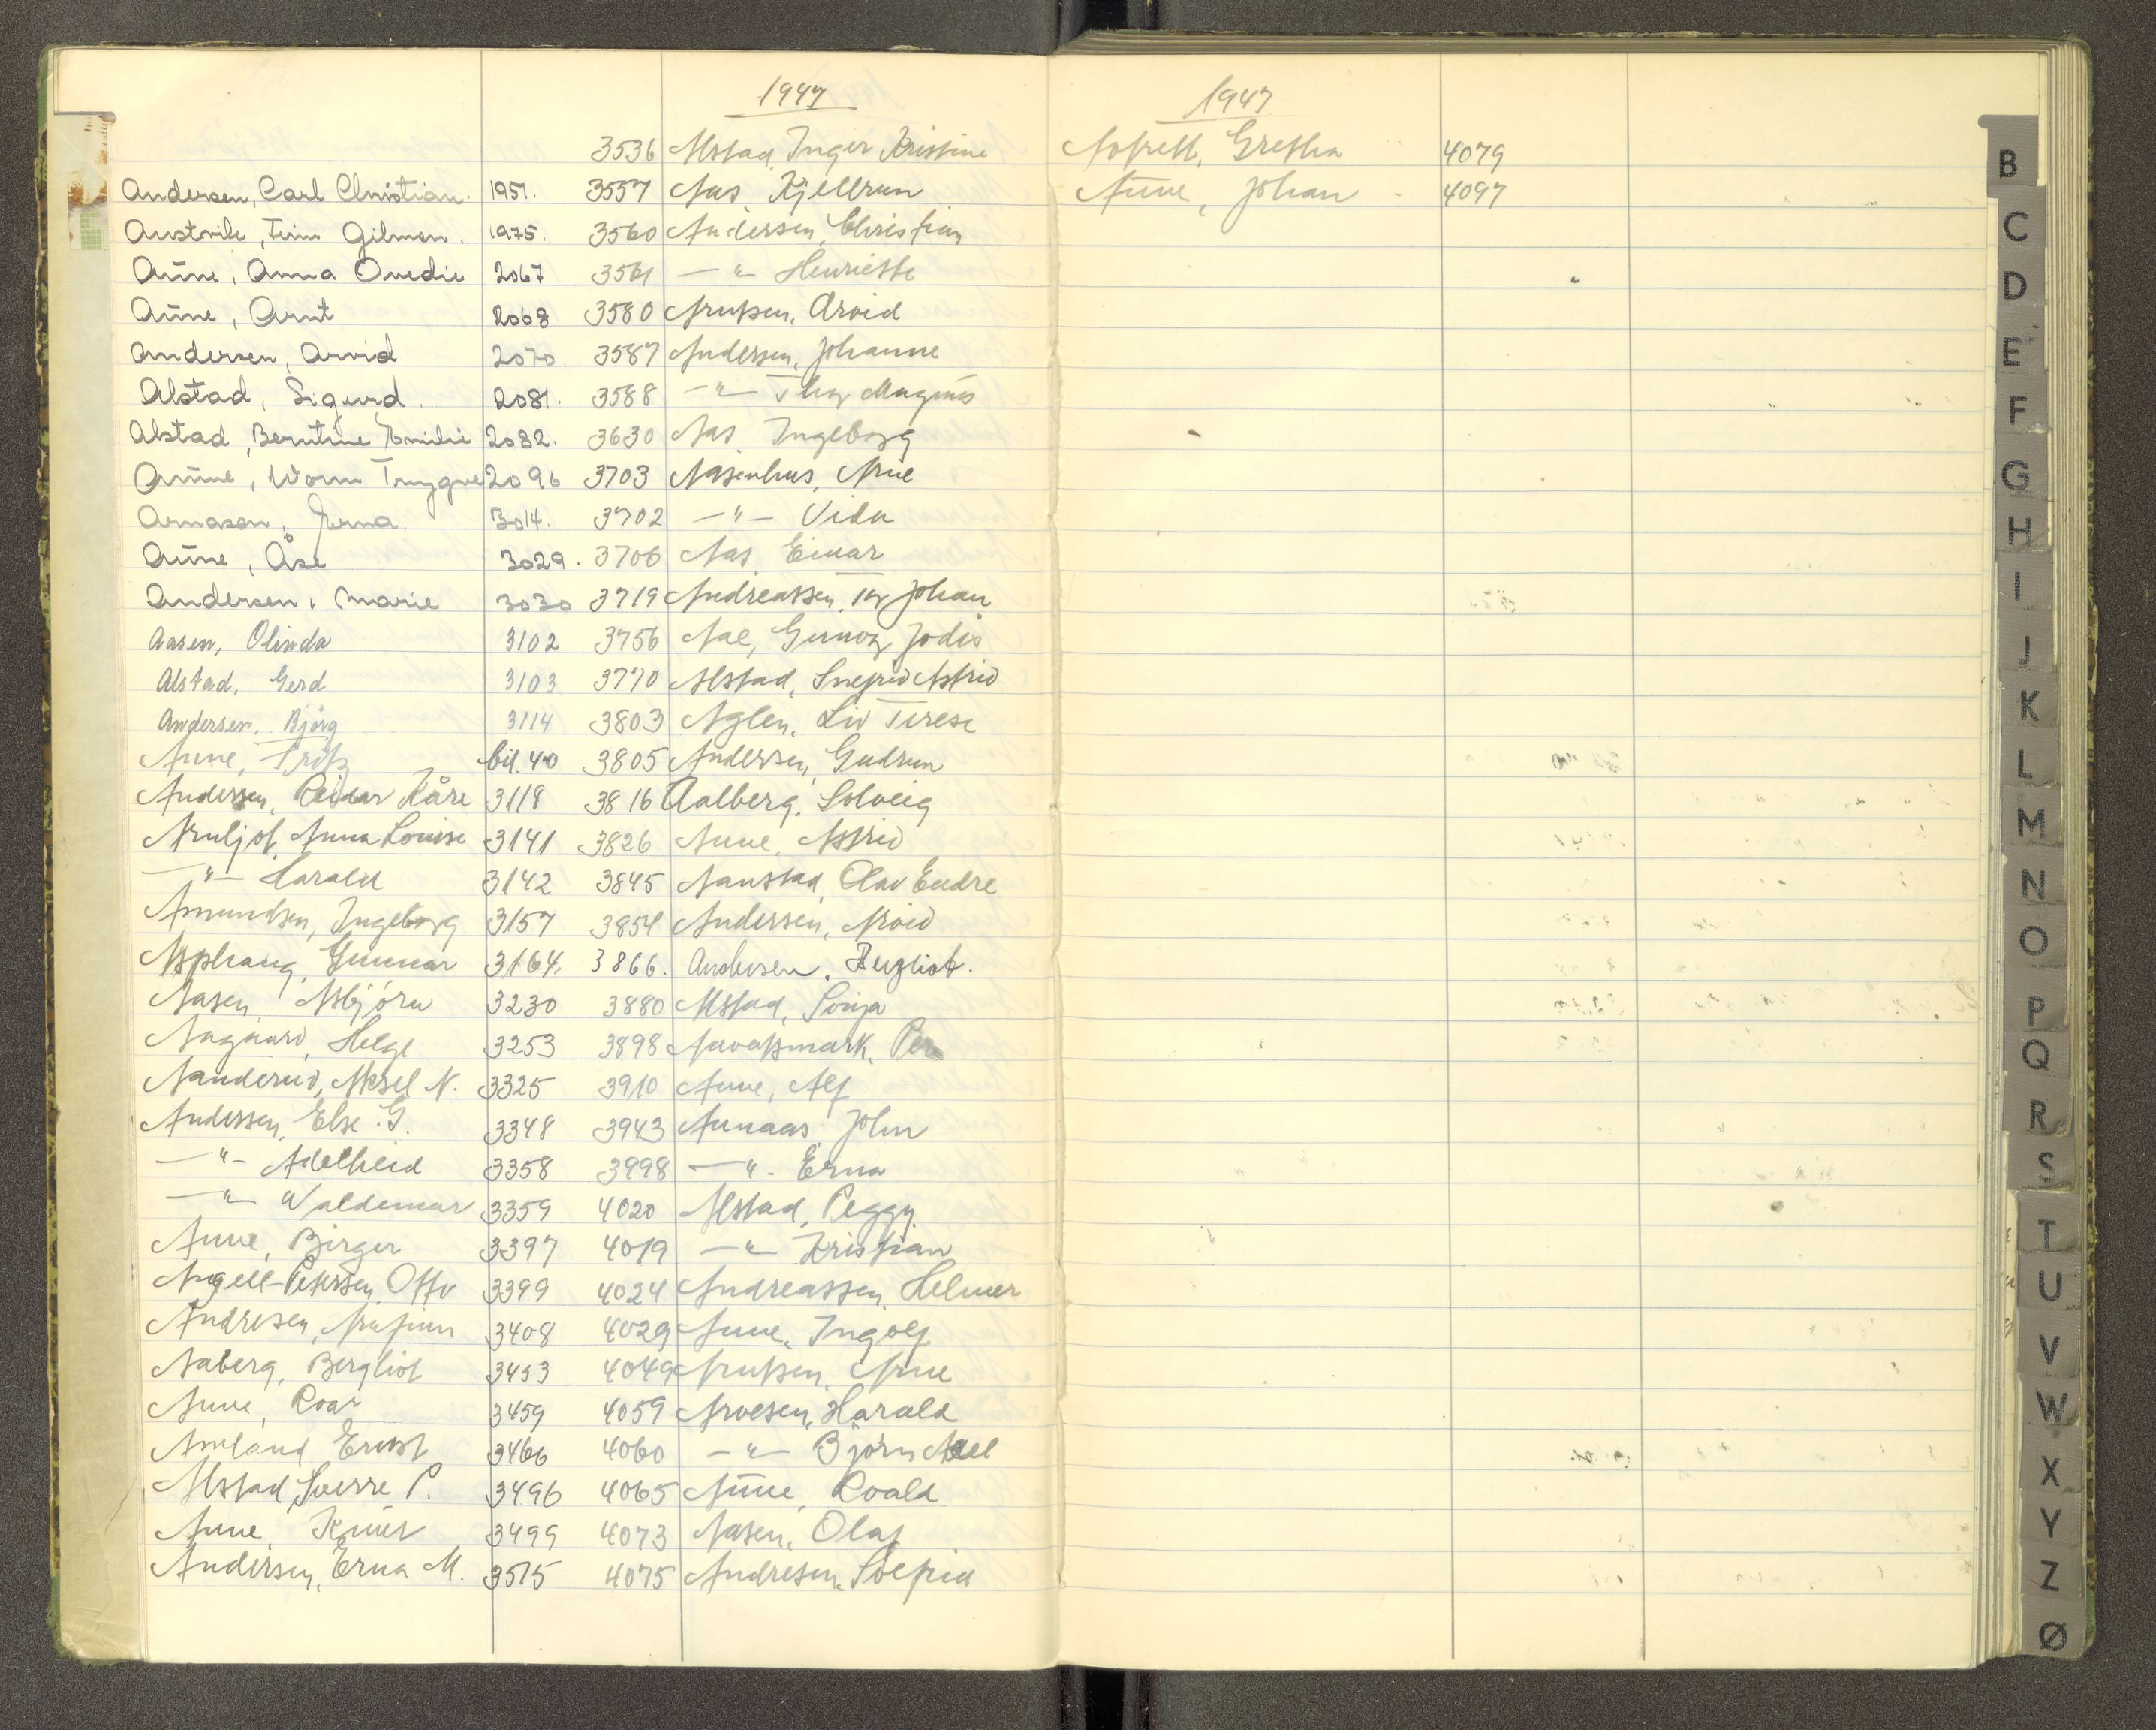 1947
3536 Alstad, Inger Kristine
Andersen, Carl Christian. 1951. 3557 Aas, Kjellrun
Austvik, Gilman. 1975. 3560 Andersen, Christian
Aune, Anna Ovedie 2067 3561 —"— Henriette
Aune, Arnt 2068 3580 Arntsen, Arvid
Andersen, Arvid 2070. 3587 Andersen, Johanne
Alstad, Sigurd. 2081. 3588 —"— Thor Magnus
Alstad, Berntine Emilie 2082. 3630 Aas, Ingeborg
Aune, Worm Trygve 2096 3703 Aasenhus, Arne
Arnasen, Erna. 3014. 3702 —"— Vida
Aune, Åse 3029. 3706 Aas, Einar
Andersen, Marie 3030 3719 Andreassen, Johan
Aasen, Olinda 3102 3756 Aae, Gunvor Jodis
Alstad, Gerd 3103 3770 Alstad, Snefrid Astrid
Andersen, Bjørg 3114 3803 Aglen, Liv Terese
Aune, Fritz bil. 40 3805 Andersen, Gudrun
Andersen, Reidar Kåre 3118 3816 Aalberg, Solveig
Arnljot, Anna Louise 3141 3826 Aune, Astrid
—"— Harald 3142 3845 Aanstad, Olav Endre
Amundsen, Ingeborg 3157 3854 Andersen, Arvid
Asphaug, Gunnar 3164. 3866. Andersen, Bergliot.
Aasen, Asbjørn 3230 3880 Alstad, Sonja
Aagaard, Helge 3253 3898 Per
Aanderud, Aksel N. 3325 3910 Aune, Alf
Andersen, Else G. 3348 3943 Aunaas, John
—"— Adelheid 3358 3998 —"— Erna
—"— Waldemar 3359 4020 Alstad, Peggy
Aune, Birger 3397 4019 —"— Kristian
Angell-Petersen, Otto 3399 4024 Andreassen, Helmer
Andresen, Arnfinn 3408 4029 Aune, Ingolf
Aaberg, Bergliot 3453 4049 Arntsen, Arne
Aune, Roar 3459 4059 Arvesen, Harald
Amland, Ernst 3466 4060 —"— Bjørn
Alstad, Sverre P. 3496 4065 Aune, Roald
Aune, 3499 4073 Aasen, Olaf
Andersen, Erna M. 3515 4075 Andresen, Solfrid
1947
Grethe 4079
Aune, Johan 4097
B
C
D
E
F
G
H
I
J
K
L
M
N
O
P
Q
R
S
T
U
V
W
X
Y
Z
Ø